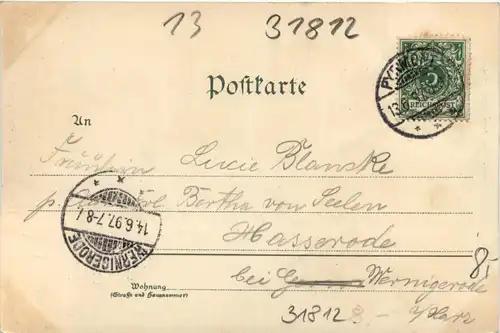 13 31812
Postkarte
PYRMONT
13
REICHSPOST
5
An
Fräulein Lucie Blanske
p. Bertha von Seelen
Hasserode
bei Wernigerode
8,-
a/Harz
WERNIGERODE
14.6.97.7-8
Wohnung
(Straße und Hausnummer)
31812